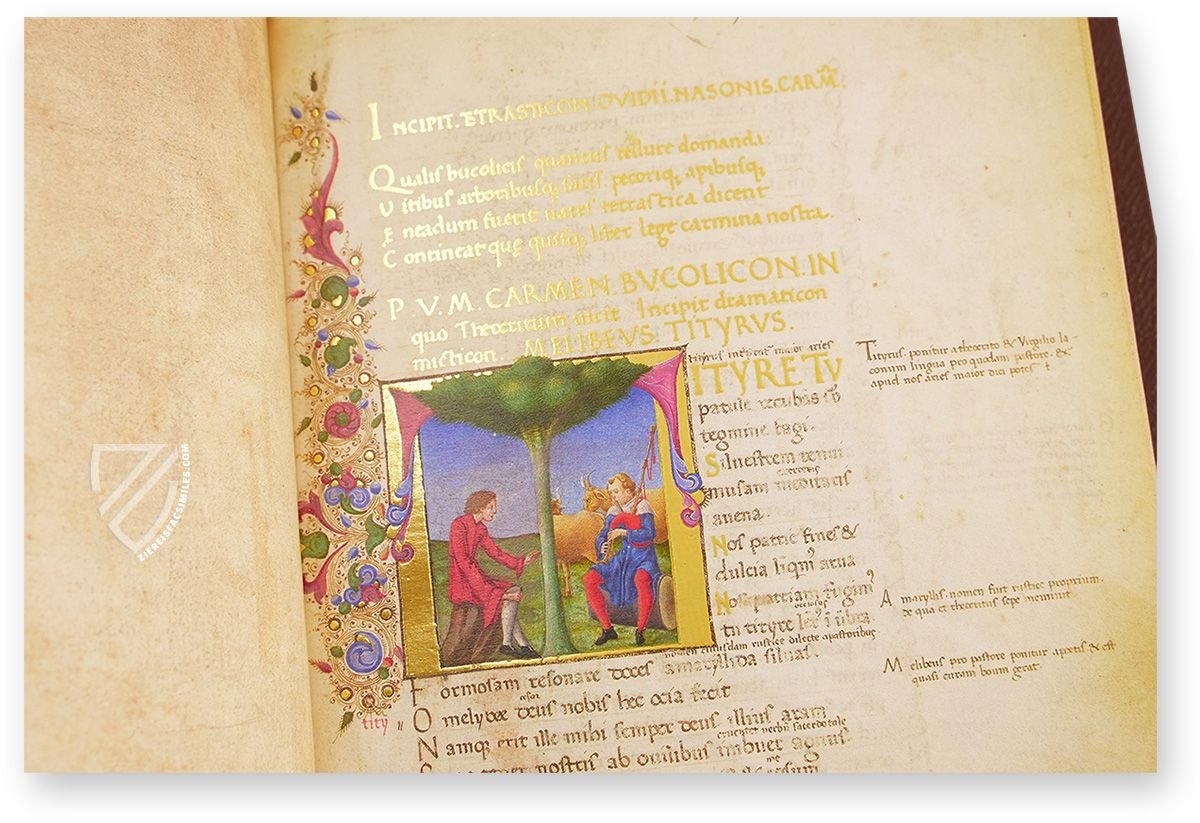 INCIPIT. TETRASTICON. OVIDII. NASONIS. CARM̄.
Qualis bucolicis quantus tellure domandi:
Vitibus arboribusq; satis pecoriq; apibusq;
Eneadum fuerit vates tetrastica dicent
Contineat quę quisq; liber lege carmina nostra.
P. V. M. CARMEN. BVCOLICON. IN
quo Theocritum sicit Incipit dramaticon
misticon. MELIBEVS: TITYRVS.
tityrus interpres maior aries
TITYRE TV
patule recubās sub
tegmine fagi.
Siluestrem tenui
musam meditaris
auena.
Nos patrie fines &
dulcia linqm̄ arua
Nos patriam fugim᾽
ociosus
tu tityre lent᾽ ī ūbra
nomen cuiusdam rustice dilecte apastoribus
Formosam resonare doces amaryllida siluas
O melybœ deus nobis hec ocia fecit
Namq; erit ille mihi semper deus illius aram
nostris ab ouilibus imbuet agnus
Tityrus. ponitur a theocrito & Virgilio la-
conum lingua pro quodam pastore. &
apud nos aries maior dici potest
Amaryllis. nomen fuit rustice proprium.
de qua et theocritus sepe meminit.
Melibeus pro pastore ponitur apoetis & est
quasi curam boum gerat.
tity
ZIEREISFACSIMILES.COM